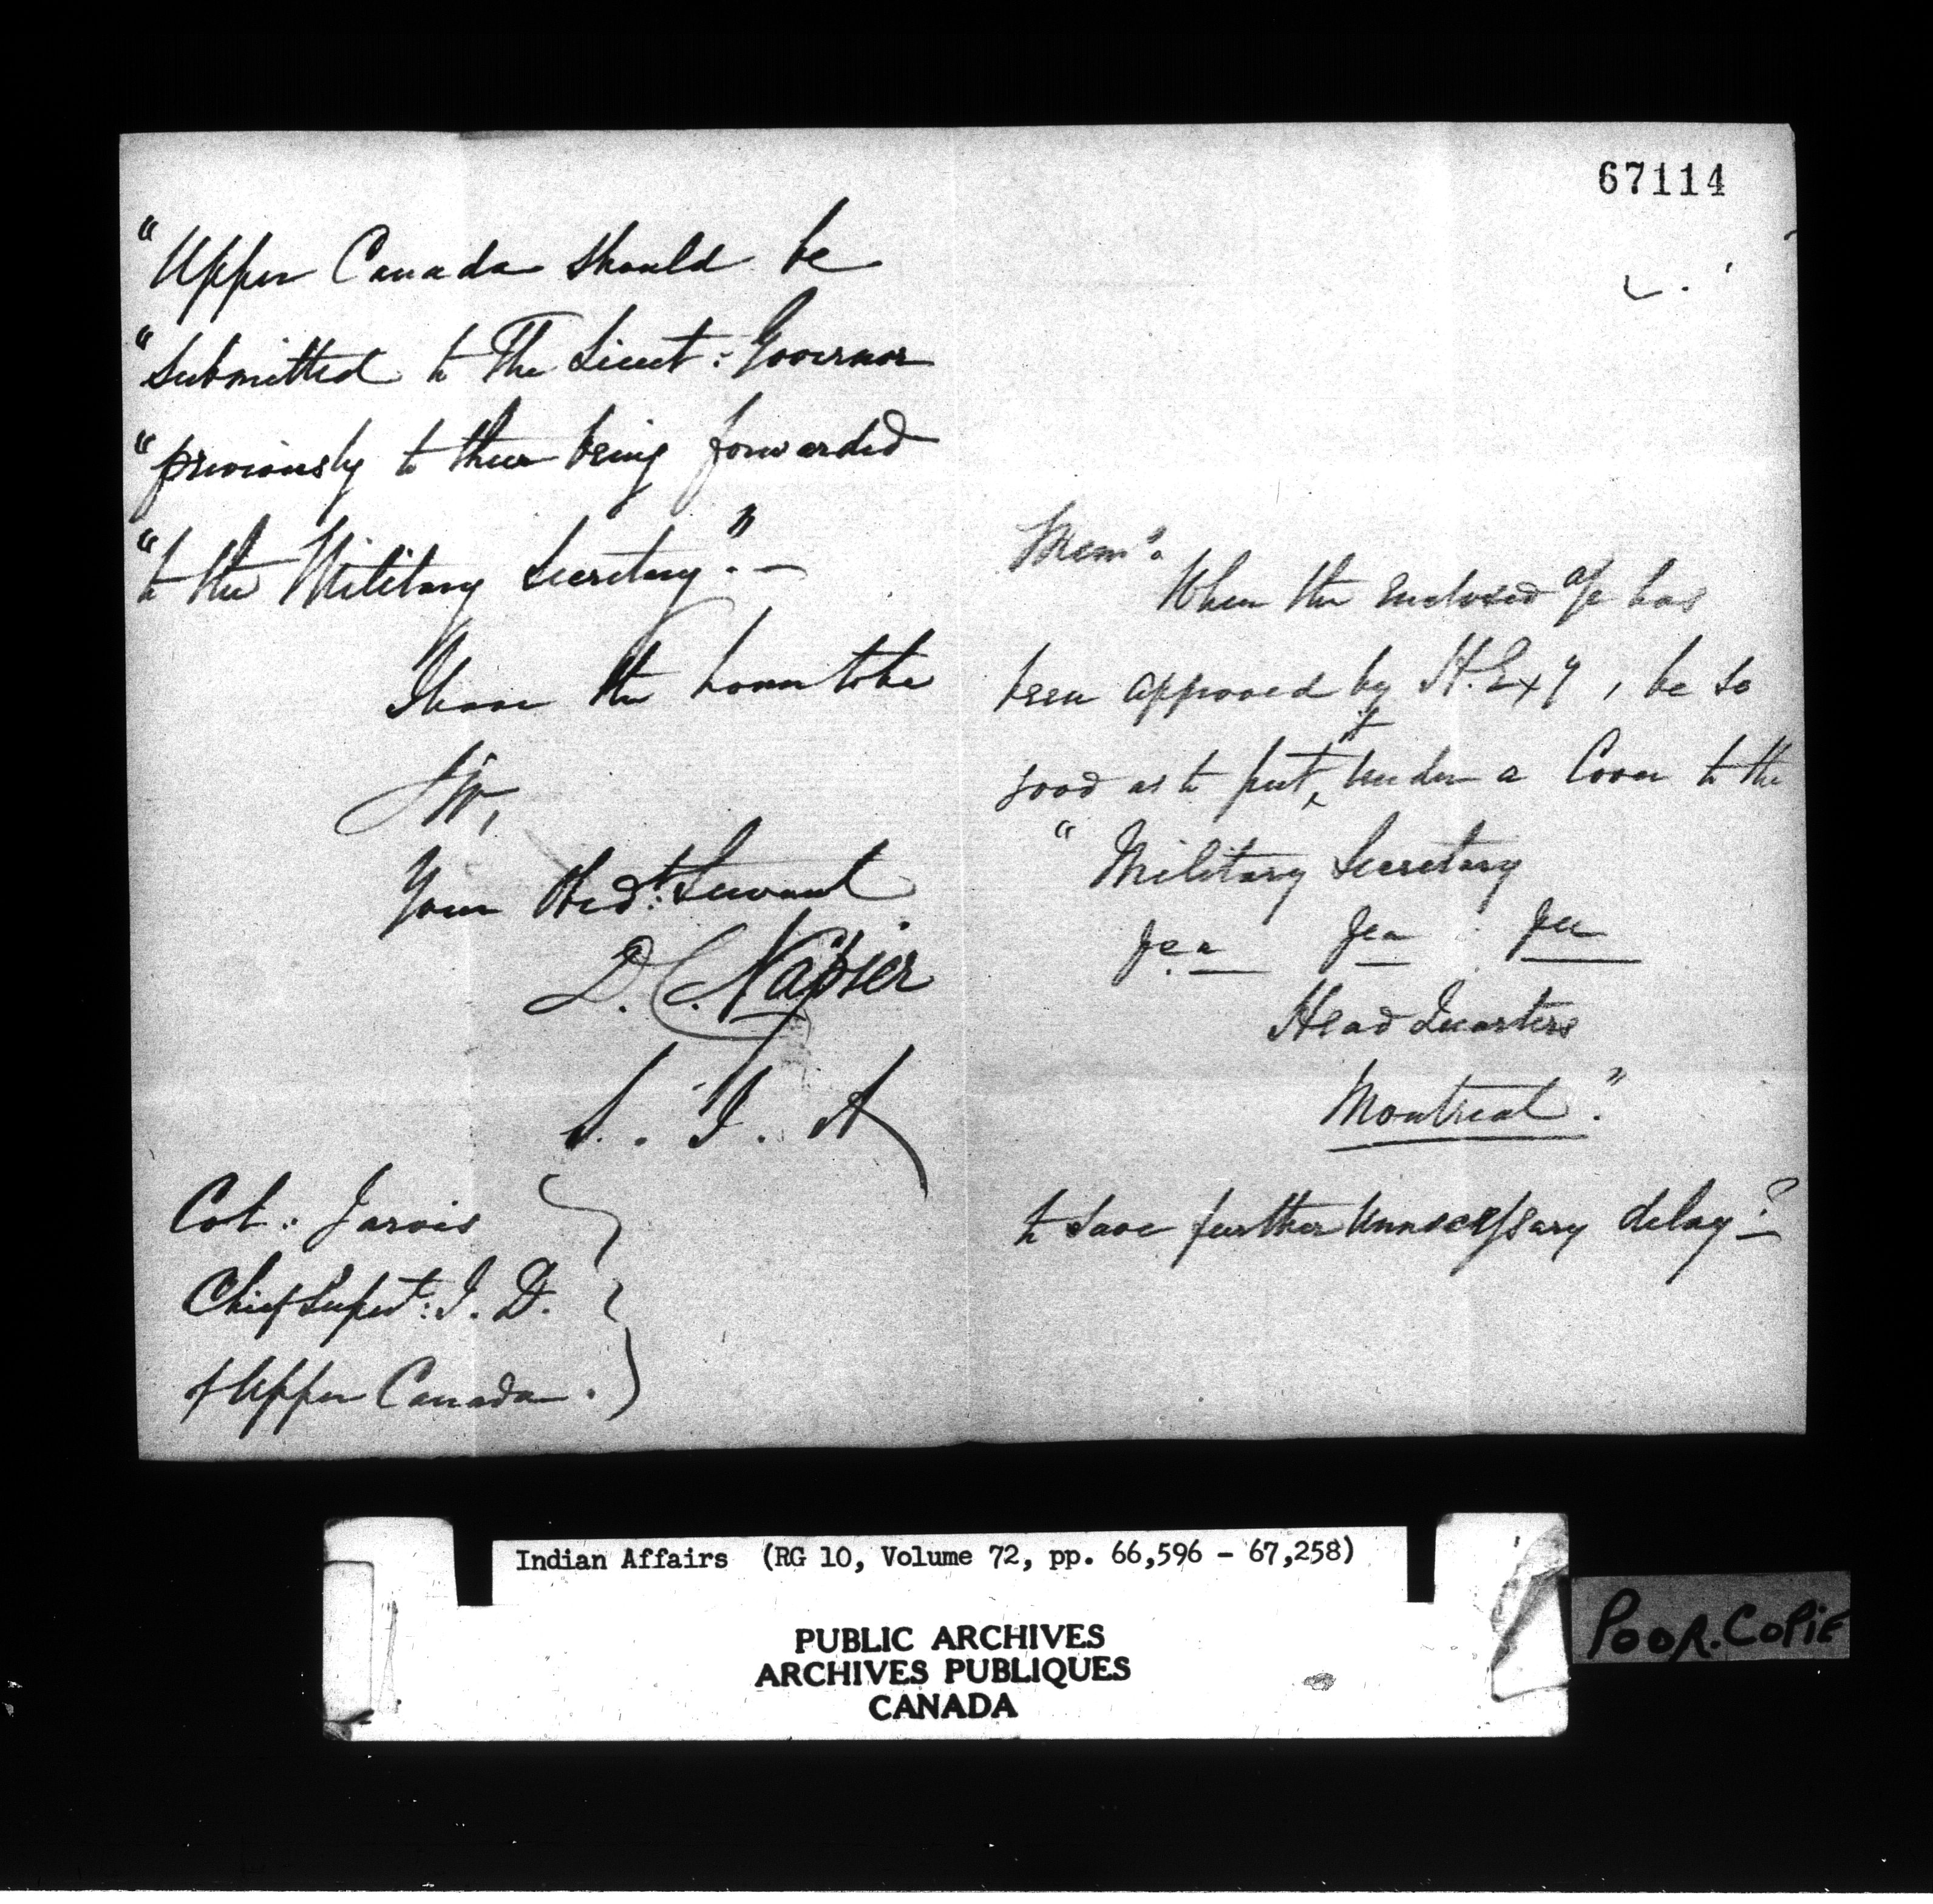 67114
"Upper Canada should be
"submitted to The Lieut: Governor
"previously to their being forwarded
"to the Military Secretary." —
I have the honor to be
Sir,
Your Obedt: Servant
D. C. Napier
S. I. A
Col: Jarvis
Chief Supert: I. D.
of Upper Canada.
Memo.
When the enclosed a/c has
been approved by H. Exy, be so
good as to put it under a Cover to the
"Military Secretary
&ca &ca &ca
Head Quarters
Montreal."
to save further unnecessary delay?
Indian Affairs (RG 10, Volume 72, pp. 66,596 - 67,258)
PUBLIC ARCHIVES
ARCHIVES PUBLIQUES
CANADA
POOR. COPIE